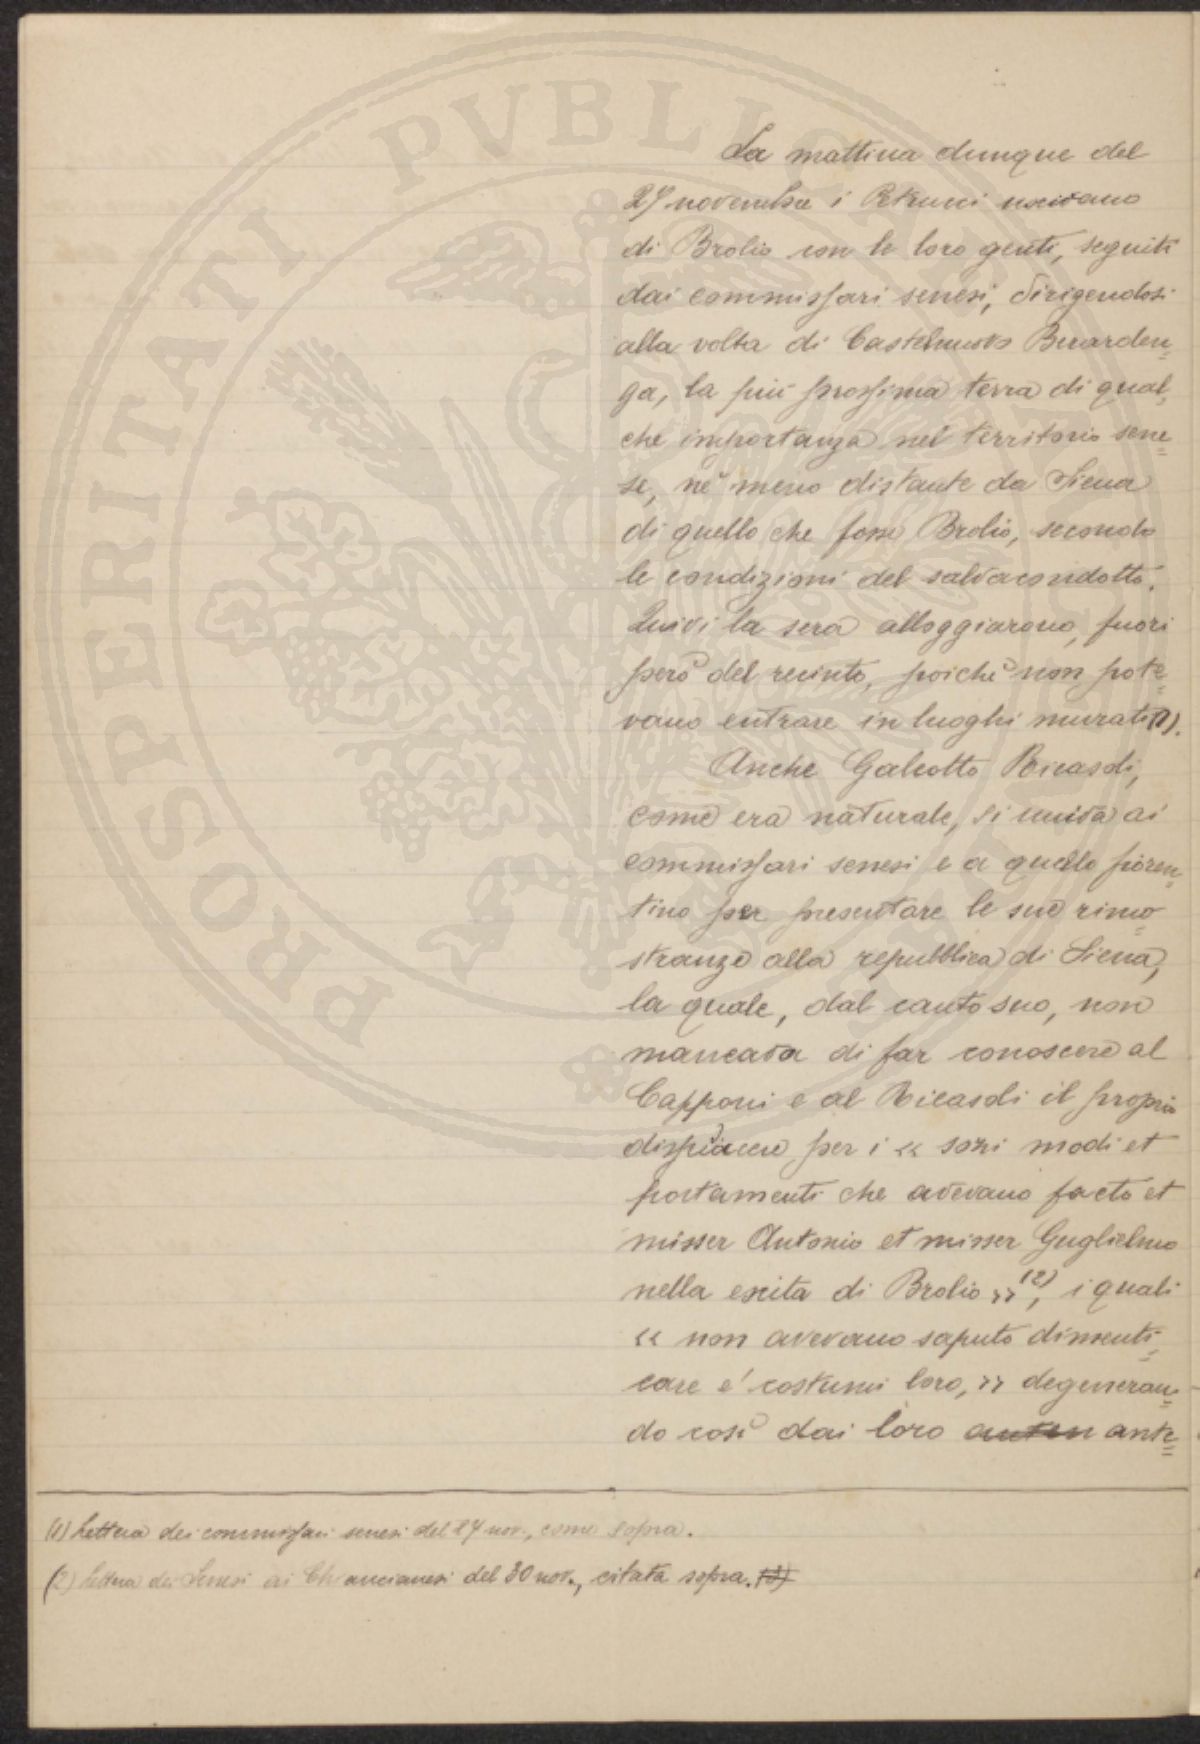 La mattina dunque del
27 novembre i Petrucci uscivano
di Brolio con le loro genti, seguiti
dai commissari senesi, dirigendosi
alla volta di Castelnuovo Berarden=
ga, la più prossima terra di qual=
che importanza nel territorio sene=
se, nè meno distante da Siena
di quello che fosse Brolio, secondo
le condizioni del salvacondotto.
Quivi la sera alloggiarono, fuori
però del recinto, poichè non pote=
vano entrare in luoghi murati (1).
Anche Galeotto Ricasoli,
come era naturale, si univa ai
commissari senesi e a quello fioren=
tino per presentare le sue rimo=
stranze alla repubblica di Siena,
la quale, dal canto suo, non
mancava di far conoscere al
Capponi e al Ricasoli il proprio
dispiacere per i « sozi modi et
portamenti che avevano facto et
misser Antonio et misser Guglielmo
nella escita di Brolio » (2), i quali
« non avevano saputo dimenti=
care e' costumi loro, » degeneran=
do così dai loro ante=
(1) Lettera dei commissari senesi del 27 nov., come sopra.
(2) Lettera dei Senesi ai Chiancianesi del 30 nov., citata sopra. (3)
PROSPERITATI PVBLICAE